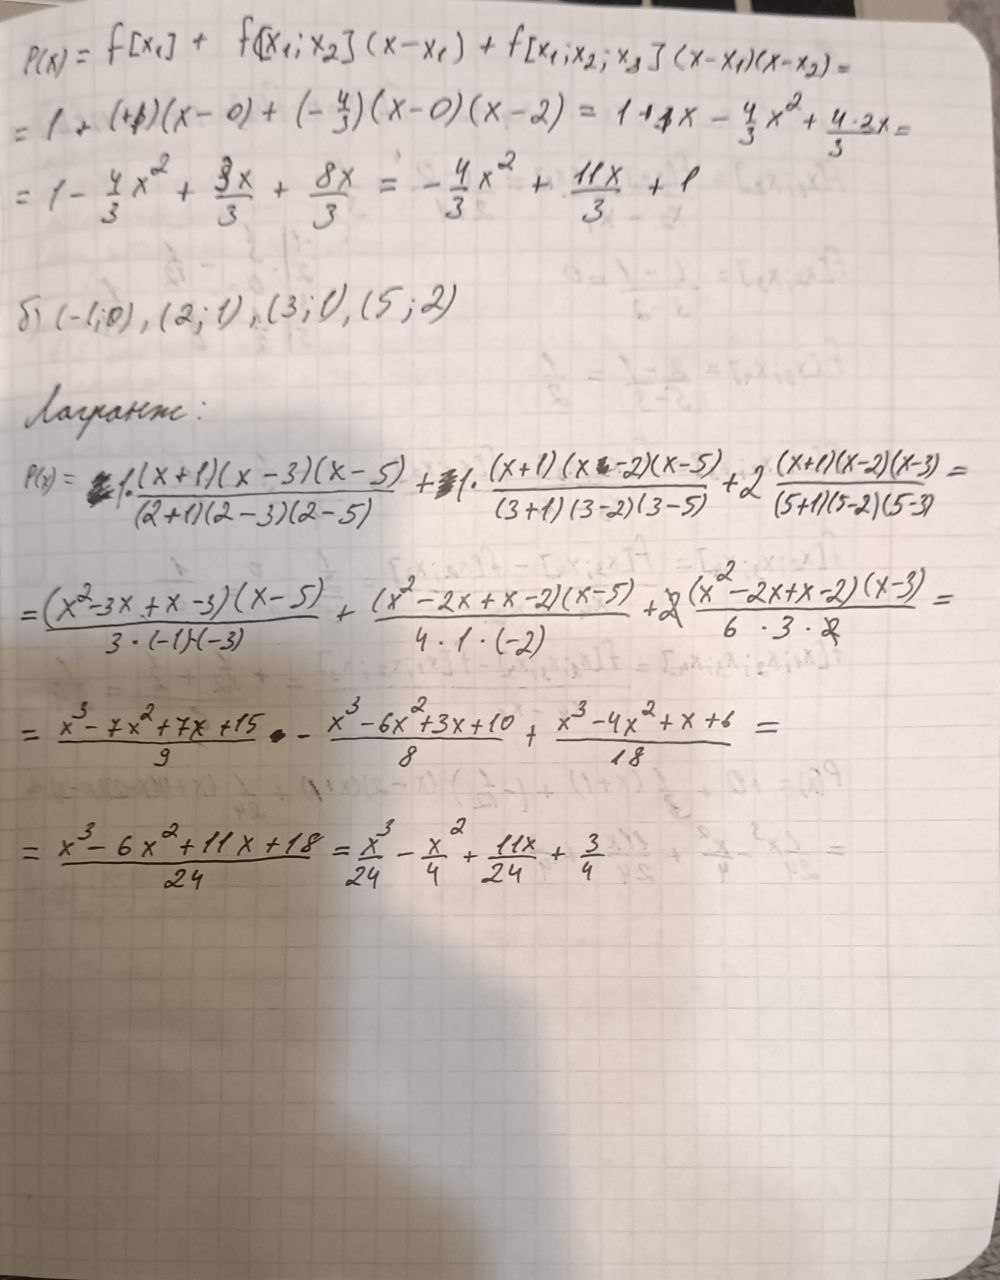 P(x) = f[x₁] + f[x₁;x₂](x-x₁) + f[x₁;x₂;x₃](x-x₁)(x-x₂) =
= 1 + (+1)(x-0) + (-4/3)(x-0)(x-2) = 1+1x - 4/3 x² + 4·2x/3 =
= 1 - 4/3 x² + 3x/3 + 8x/3 = -4/3 x² + 11x/3 + 1
б) (-1;0), (2;1), (3;1), (5;2)
Лагранж:
P(x) = 1·(x+1)(x-3)(x-5)/(2+1)(2-3)(2-5) + 1·(x+1)(x-2)(x-5)/(3+1)(3-2)(3-5) + 2 (x+1)(x-2)(x-3)/(5+1)(5-2)(5-3) =
= (x²-3x+x-3)(x-5)/3·(-1)·(-3) + (x²-2x+x-2)(x-5)/4·1·(-2) + 2(x²-2x+x-2)(x-3)/6·3·2 =
= x³-7x²+7x+15/9 - x³-6x²+3x+10/8 + x³-4x²+x+6/18 =
= x³-6x²+11x+18/24 = x³/24 - x²/4 + 11x/24 + 3/4